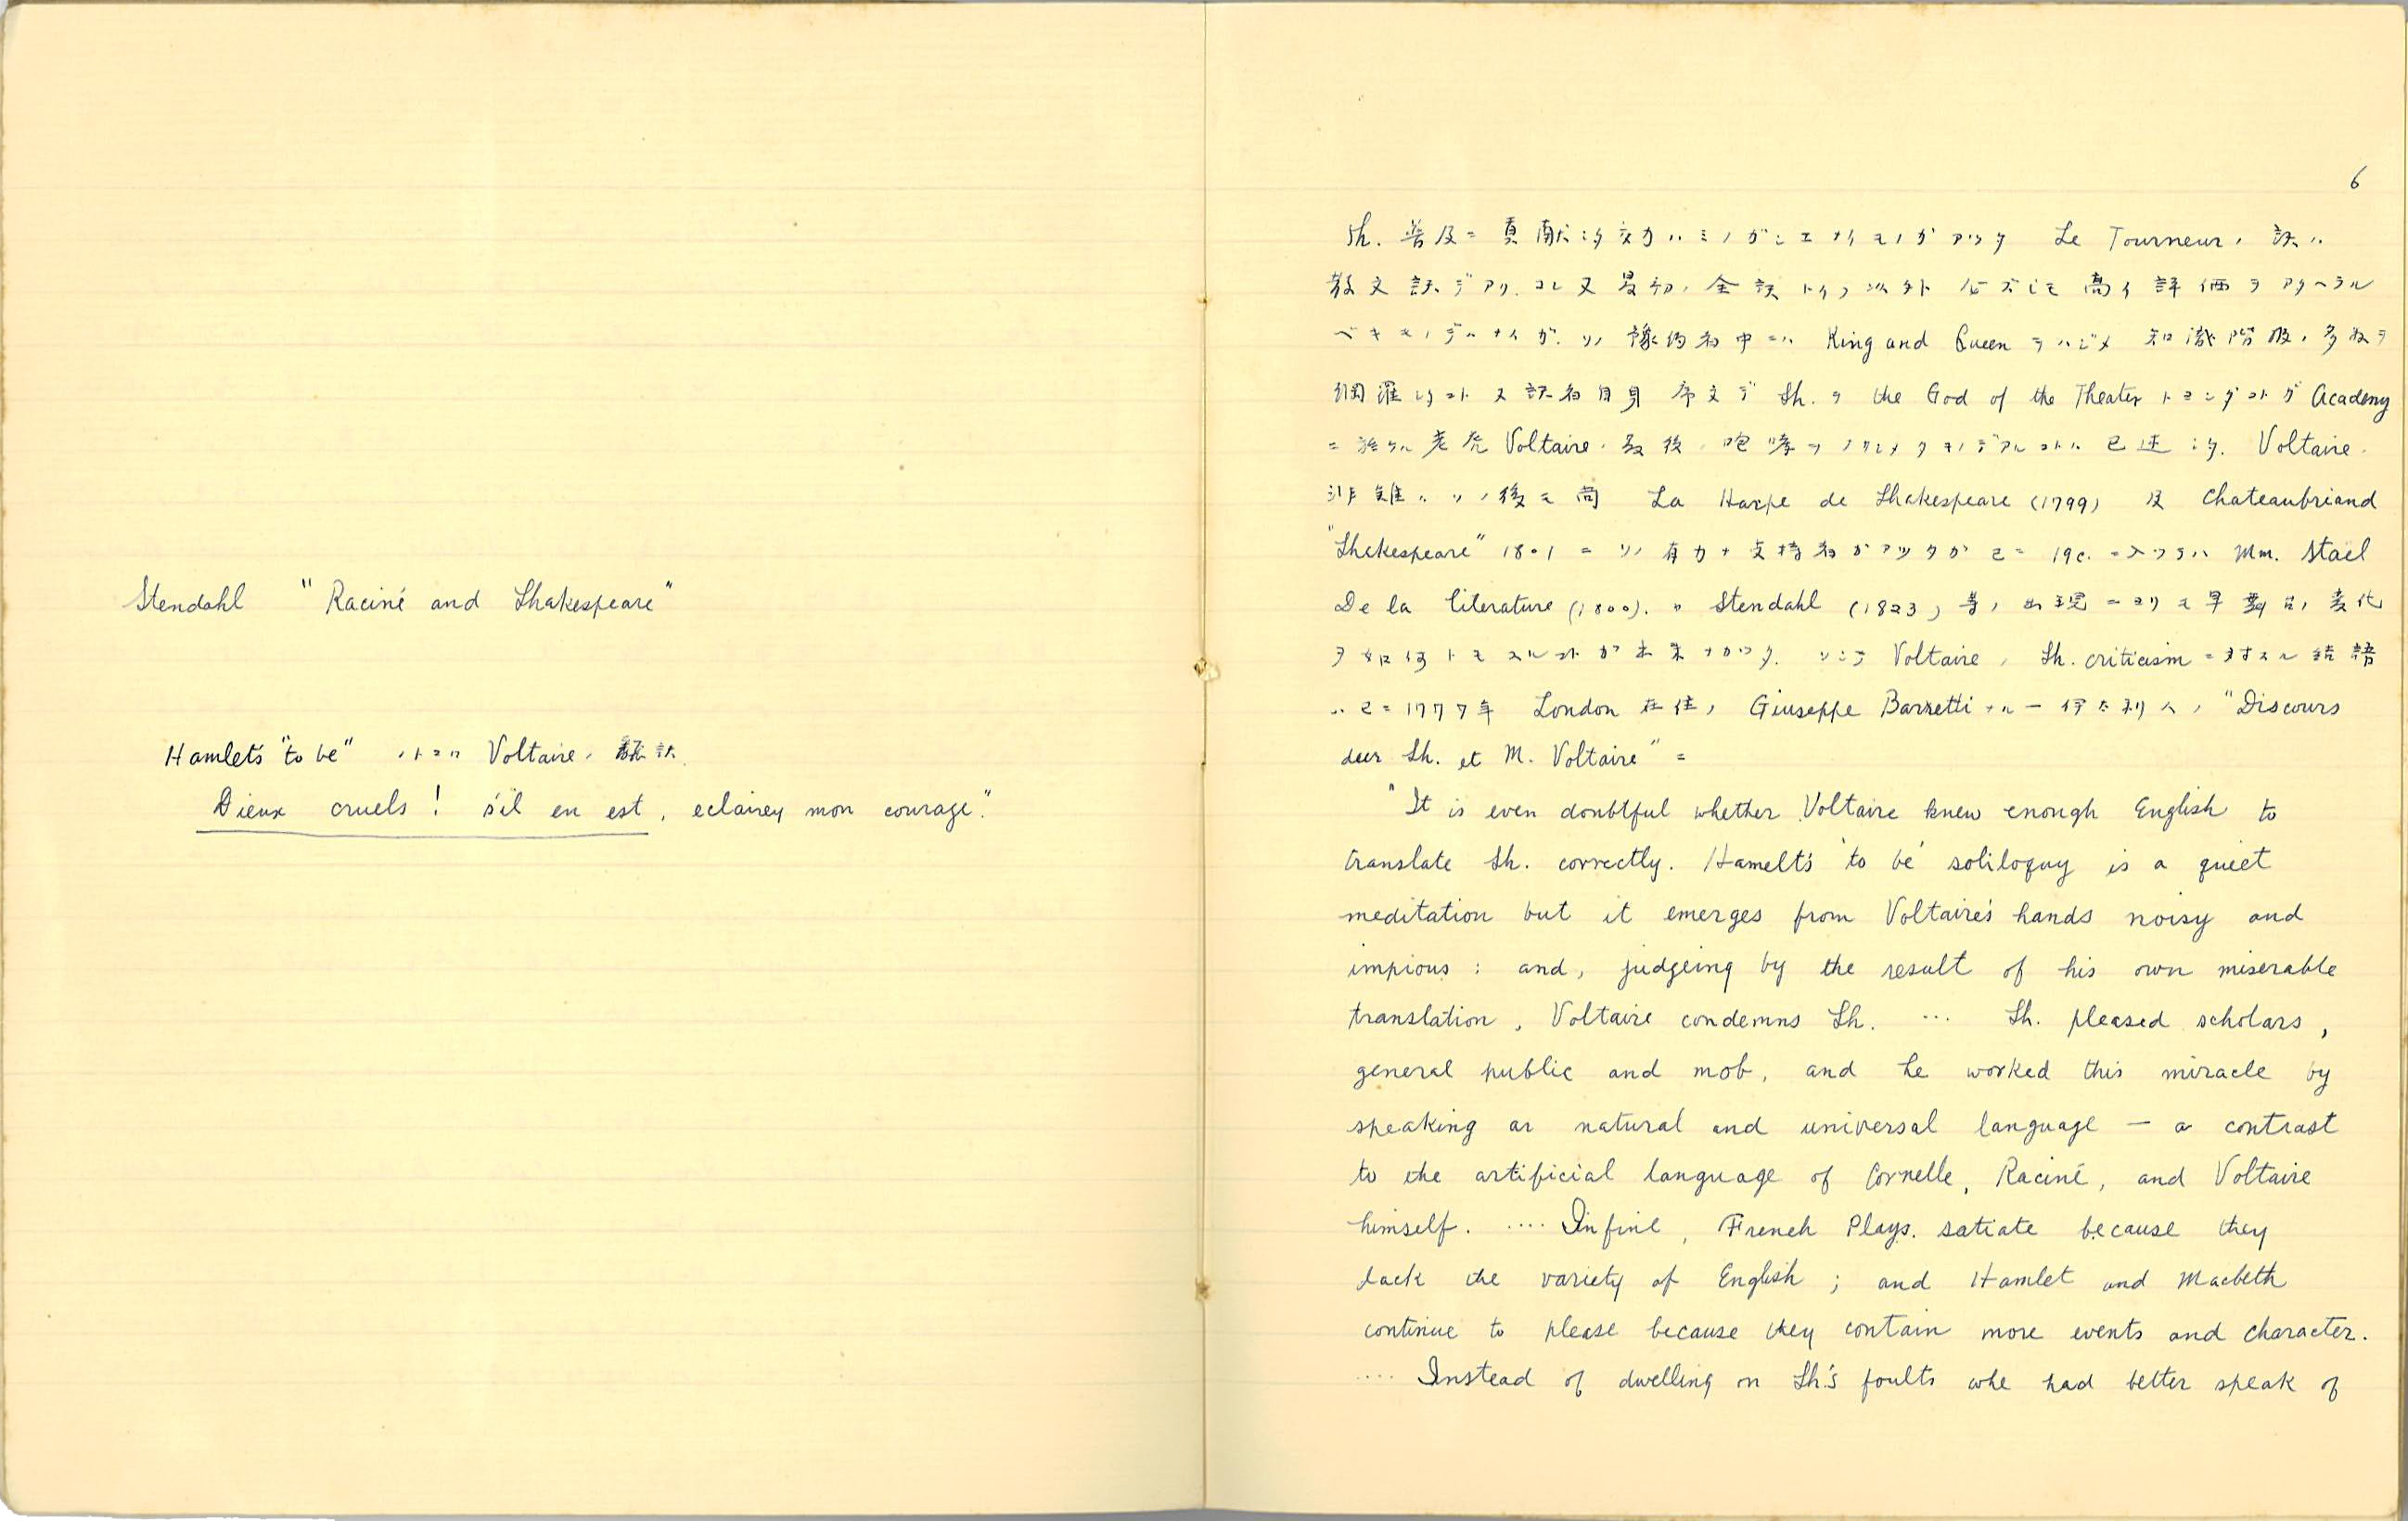 Stendahl "Raciné and Shakespeare"
Hamlet's "to be" ノトコロ Voltaire ノ 飜訳
Dieux cruels! s'il en est, eclairey mon courage."
6
Sh. 普及ニ貢献シタ効力ハミノガシエナイモノガアッタ Le Tourneur ノ訳ハ
散文訳デアリ、コレ又最初ノ全訳トイフ以外必ズシモ高イ評価ヲアタヘラル
ベキモノデハナイガ、ソノ予約者中ニハ King and Queen ヲハジメ知識階級ノ多数ヲ
網羅シタコト又訳者自身序文デ Sh. ヲ the God of the Theater トヨンダコトガ Academy
ニ於ケル老虎 Voltaire ノ最後ノ咆哮ヲ ナルコトハ已述シタ. Voltaire ノ
非難ハソノ後モ尚 La Harpe de Shakespeare (1799) 及 Chateaubriand
"Shakespeare" 1801 ニソノ有力ナ支持者ガアッタガ已ニ 19c. ニ入ッテハ Mm. Stael
De la literature (1800). Stendahl (1823) 等ノ出現ニヨリモ早 変化
ヲ如何トモスルコトガ出来ナカッタ. ソシテ Voltaire ノ Sh. criticism ニ対スル結語
ハ已ニ1777年 London 在住ノ Giuseppe Barretti ナル一伊太利人ノ "Discours
deer Sh. et M. Voltaire" ニ
"It is even doubtful whether Voltaire knew enough English to
translate Sh. correctly. Hamelt's 'to be' soliloquy is a quiet
meditation but it emerges from Voltaire's hands noisy and
impious : and, judgeing by the result of his own miserable
translation, Voltaire condemns Sh. ... Sh. pleased scholars,
general public and mob, and he worked this miracle by
speaking ar natural and universal language — a contrast
to the artificial language of Cornelle, Raciné, and Voltaire
himself. .... Infine, French Plays. satiate because they
lack the variety of English ; and Hamlet and Macbeth
continue to please because they contain more events and character.
.... Instead of dwelling on Sh.'s foults whe had better speak of